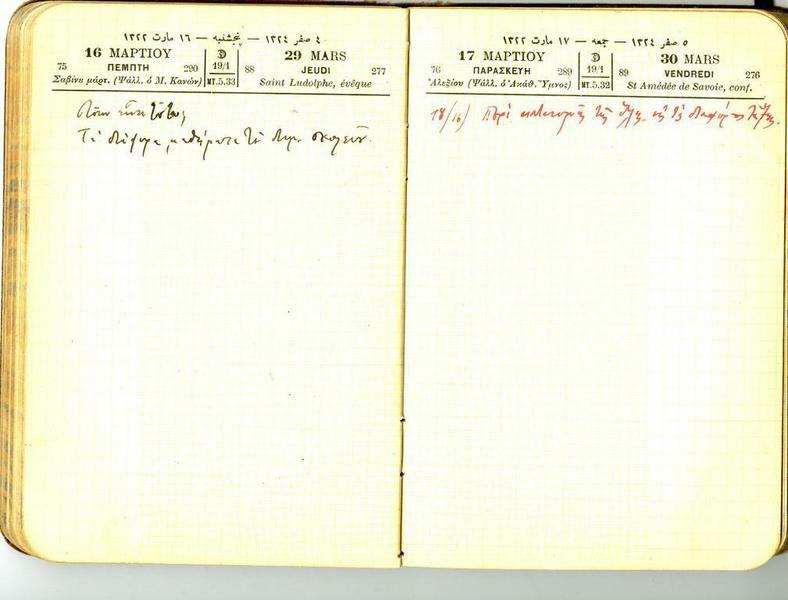 ٤ صفر ١٣٢٤ — پنجشنبه — ١٦ مارت ١٣٢٢
16 ΜΑΡΤΙΟΥ 29 MARS
75 ΠΕΜΠΤΗ 290 19/1 88 JEUDI 277
Σαβίνυ μάρτ. (Ψάλλ. ὁ Μ. Κανὼν) ΜΤ.5.33 Saint Ludolphe, évêque
Τὰ διάφορα μαθήματα τῶν δημ. σχολείων.
٥ صفر ١٣٢٤ — جمعه — ١٧ مارت ١٣٢٢
17 ΜΑΡΤΙΟΥ 30 MARS
76 ΠΑΡΑΣΚΕΥΗ 289 19/1 89 VENDREDI 276
Ἀλεξίου (Ψάλλ. ὁ Ἀκάθ. Ὕμνος) ΜΤ.5.32 St Amédée de Savoie, conf.
18/16) Περὶ κατανομῆς τῆς ὕλης